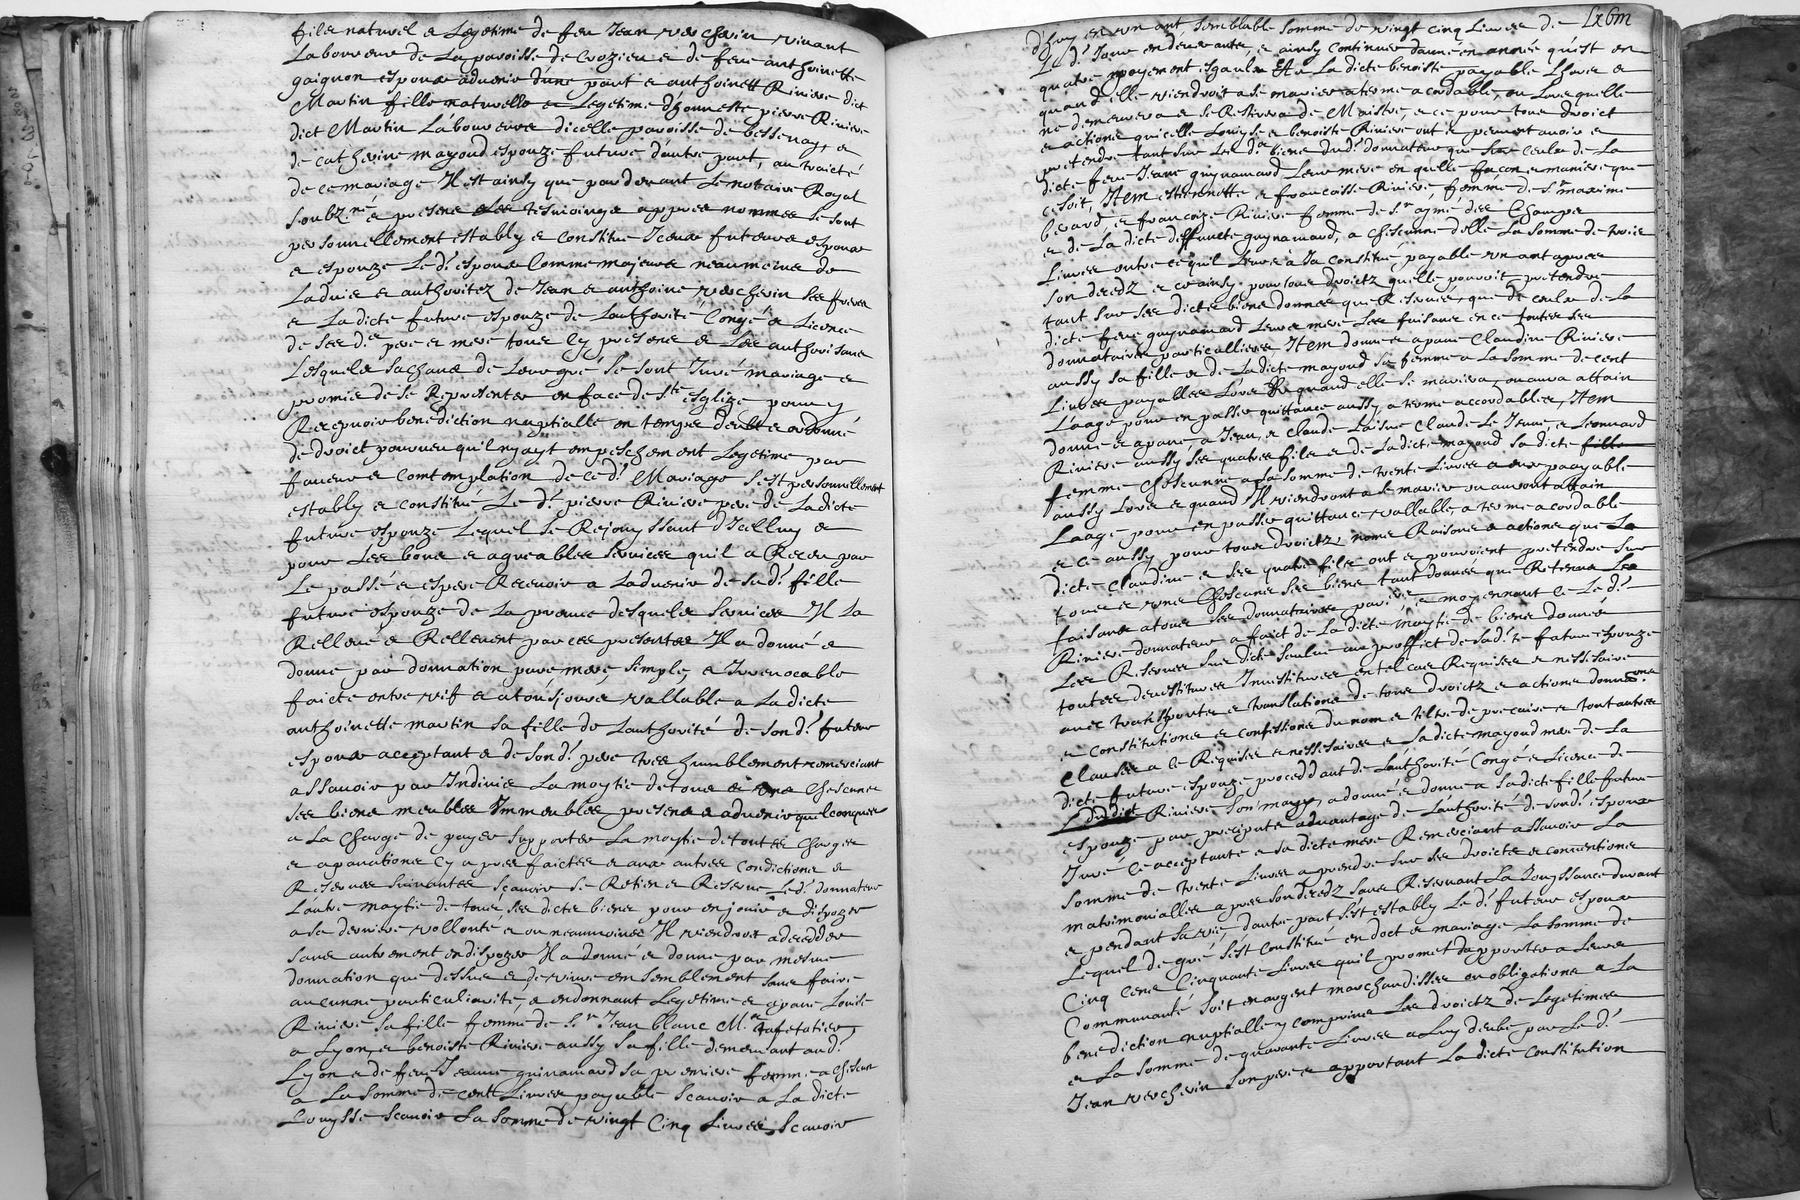 filz naturel et Legitime de feu Jean verchevin vivant
Laboureur de La paroisse de Crozieu et de feue anthoinette
gaignon espoux advenir d'une part et anthoinett Riviere dict
Martin fille naturelle et Legitime d'honneste pierre Riviere
dict Martin Laboureur dicelle paroisse de bessenay, et
de catherine mayoud espouze future dautre part, au traicté
de ce mariage Il est ainsy que par devant Le notaire Royal
soubz.né et presens Les tesmoings appres nommes se sont
personnellement establiy et constitue Iceux futeurs espoux
et espouze Le d.t espoux comme majeure neaumoins de
Ladvis et authoritez de Jean et anthoine verchevin ses freres
et La dicte future espouze de Lauthorité Congé et Licence
de ses d.t pere et mere tous Cy presens et Les authorisans
Lesquels sachant de Leur gré se sont Juré mariage et
promis de se Representer en face de S.te esglize pour y
Recepvoir benediction nuptialle en temps deubt et ordonné
de droict pourveu qu'il ny ayt empeschement Legitime par
faveur et Contemplation de Ce d.t Mariage s'est personnellement
estably et constitué Le d.t pierre Riviere pere de La dicte
future espouze Lequel se Rejouyssant d'Icelluy et
pour Les bons et agreables services quil a Receu par
Le passé et espere Recevoir a Ladvenir de sa d.t fille
future espouze de La preuve desquels services Il La
Relleve et Rellevent par ces presentes Il a donné et
donne par donnation pure, mere simple et Irrevocable
faicte entre vif et a tousjours vallable a La dicte
anthoinette martin sa fille de Lauthorité de son d.t futeur
espoux acceptant et de son d.t pere tres humblement remerciant
assavoir par Indivis La moytie de tous et Chescuns
ses biens meubles Immeubles presens et advenir quelconques
a La Charge de payer supporter La moytie de toutes Charges
et aparations Cy apres faictes et aux autres Condictions et
Reserves suivantes scavoir se Retien et Reserve Le d.t donnateur
Lautre moytie de tous ses dicts biens pour en jouir et dispozer
a sa derniere vollonté et ou neaumoings Il viendroit a decedder
sans autrement en dispozer Il a donne et donne par mesme
donnation que dessus et de vivre emsemblement sans faire
aucunne particuliarité, et en donnant Legitime et apane Louise
Riviere sa fille femme de S.r Jean blanc M.e tafetatier
a Lyon, et benoiste Riviere aussy sa fille demeurant aud.t
Lyon et de feue Jeanne guinamard sa premiere femme a chescune
a La somme de cent Livres payable scavoir a La dicte
Louysse scavoir La somme de vingt Cinq Livres, scavoir
Lx6m
d'huy en un ant, semblable somme de vingt cinq Livres de
Le d.t Jour en deux ants, et ainsy continuer d'année en année quist en
quatre payement esgaulx Et a La dicte benoiste payable Lhors et
quand elle viendroit a se marier a terme acordable, ou Lors quelle
ne demeurera et se Restirera de Maistre, et ce pour tous droict
et actions qu'icelle Louyse et benoiste Riviere ont et peuvent avoir et
pretendre tant sur Les d.ts biens du d.t donnateur que sur ceulx de La
dicte feue Jeane guynamard Leur mere en quelle facon et maniere que
ce soit, Item estiennette et francoisse Riviere femme de S.r maxime
berard, et francoise Riviere femme de S.r aymé des Champs
et de La dicte deffuncte guynamard, a chescunne delle La somme de trois
Livres outre ce qu'il Leurs a Ja constitué payable un ant apres
son decedz et ce ainsy pour tous droictz quelle pouvoit pretendre
tant sur ses dicts biens donnés que Reserves, que de ceulx de La
dicte feue guynamard Leurs mere Les faisant en ce toutes ses
donnataires particullieres Item donne et apane Claudine Riviere
aussy sa fille et de La dicte mayoud sa femme a La somme de cent
Livres payables Lors et quand elle se mariera, ou aura attain
Laage pour en passer quittance aussy a terme accordable, Item
donne et apane a Jean, et claude Laisne Claude Le Jeune, et Leonnard
Riviere aussy ses quatres filz et de La dicte mayoud sa dicte
femme chescunne a La somme de trente Livres a eux payable
aussy Lors et quand Il viendront a se marier ou auront attain
Laage pour en passer quittance vallable, a terme acordable
et ce aussy pour tous droictz, noms Raisons et actions que La
dicte claudine et ses quatre filz ont et pouvoient pretendre sur
tous et uns Chescuns ses biens tant donnés que Retenus Les
faisant a tous ses donnataires par Icelle, et moyennant Ce Le d.t
Riviere donnateur a faict de La dicte moytie de biens donnés
Les Reserves sus dicte saulve au proffict de sa d.te future espouze
toutes devestitures Investitures en tel cas Requises et nessesaire
avec transportz et translations de tous droictz et actions
et Constitutions et confessions du nom et tiltre de precaire et tout autres
Clauses a Ce Requises et nessesaires et La dicte mayoud mere de La
dicte future espouze proceddant de Lauthorité Congé et Licence de
dudict Riviere son mary, a donné et donne a sa dicte fille future
espouze par preciput et advantage de Lauthorité de son d.t espoux
Juré Ce acceptante et sa dicte mere Remerciant assavoir La
somme de trente Livres a prendre sur ses droictz et conventions
matrimonialles apres son decedz sans Reservant La Jouyssance durant
et pendant sa vie, dautre part s'est estably Le d.t futeur espoux
Lequel de gré s'est constitué en doct et mariage La somme de
Cinq Cens Cinquante Livres quil promet dapporter a Leurs
Communauté soit en argent marchandisses ou obligations a La
benediction nuptialle y comprins Les droictz de Legitimes
et La somme de quarante Livres a Luy deubt par Le d.t
Jean verchevin son pere et apportant La dicte Constitution